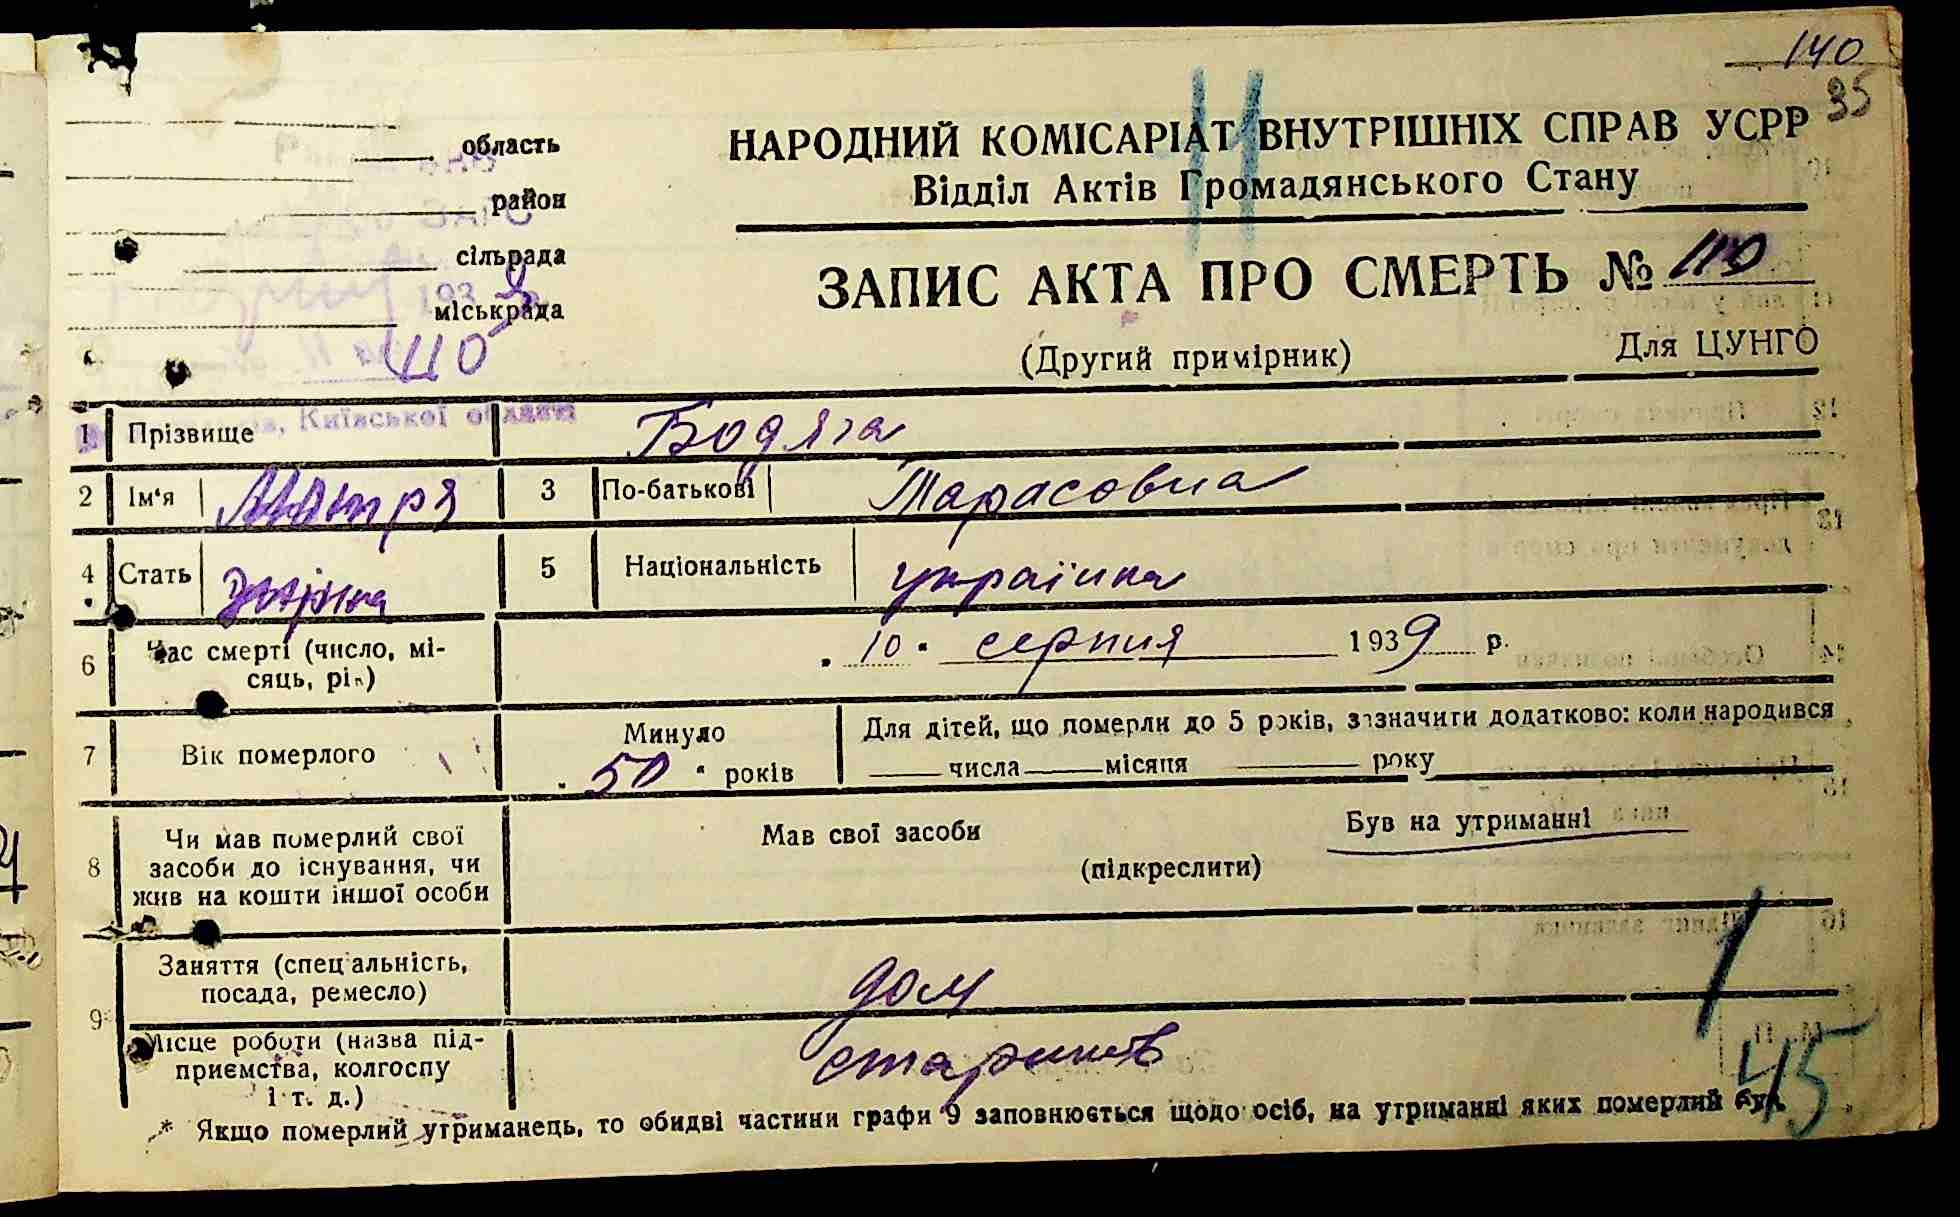 140
35
область
район
сільрада
193
міськрада
110
НАРОДНИЙ КОМІСАРІАТ ВНУТРІШНІХ СПРАВ УСРР
11
Відділ Актів Громадянського Стану
ЗАПИС АКТА ПРО СМЕРТЬ № 110
(Другий примірник)
Для ЦУНГО
Київської області
1 Прізвище Бодяга
2 Ім'я 3 По-батькові Тарасовна
4 Стать 5 Національність українка
6 Час смерті (число, мі-
сяць, рік)
„ 10 " серпня 1939 р.
7 Вік померлого
Минуло
„ 50 " років
Для дітей, що померли до 5 років, зазначити додатково: коли народився
числа місяця року
8 Чи мав померлий свої
засоби до існування, чи
жив на кошти іншої особи
Мав свої засоби
Був на утриманні
(підкреслити)
9 Заняття (спеціальність,
посада, ремесло)
дом
Місце роботи (назва під-
приємства, колгоспу
і т. д.)
1
45
* Якщо померлий утриманець, то обидві частини графи 9 заповнюється щодо осіб, на утриманні яких померлий був.